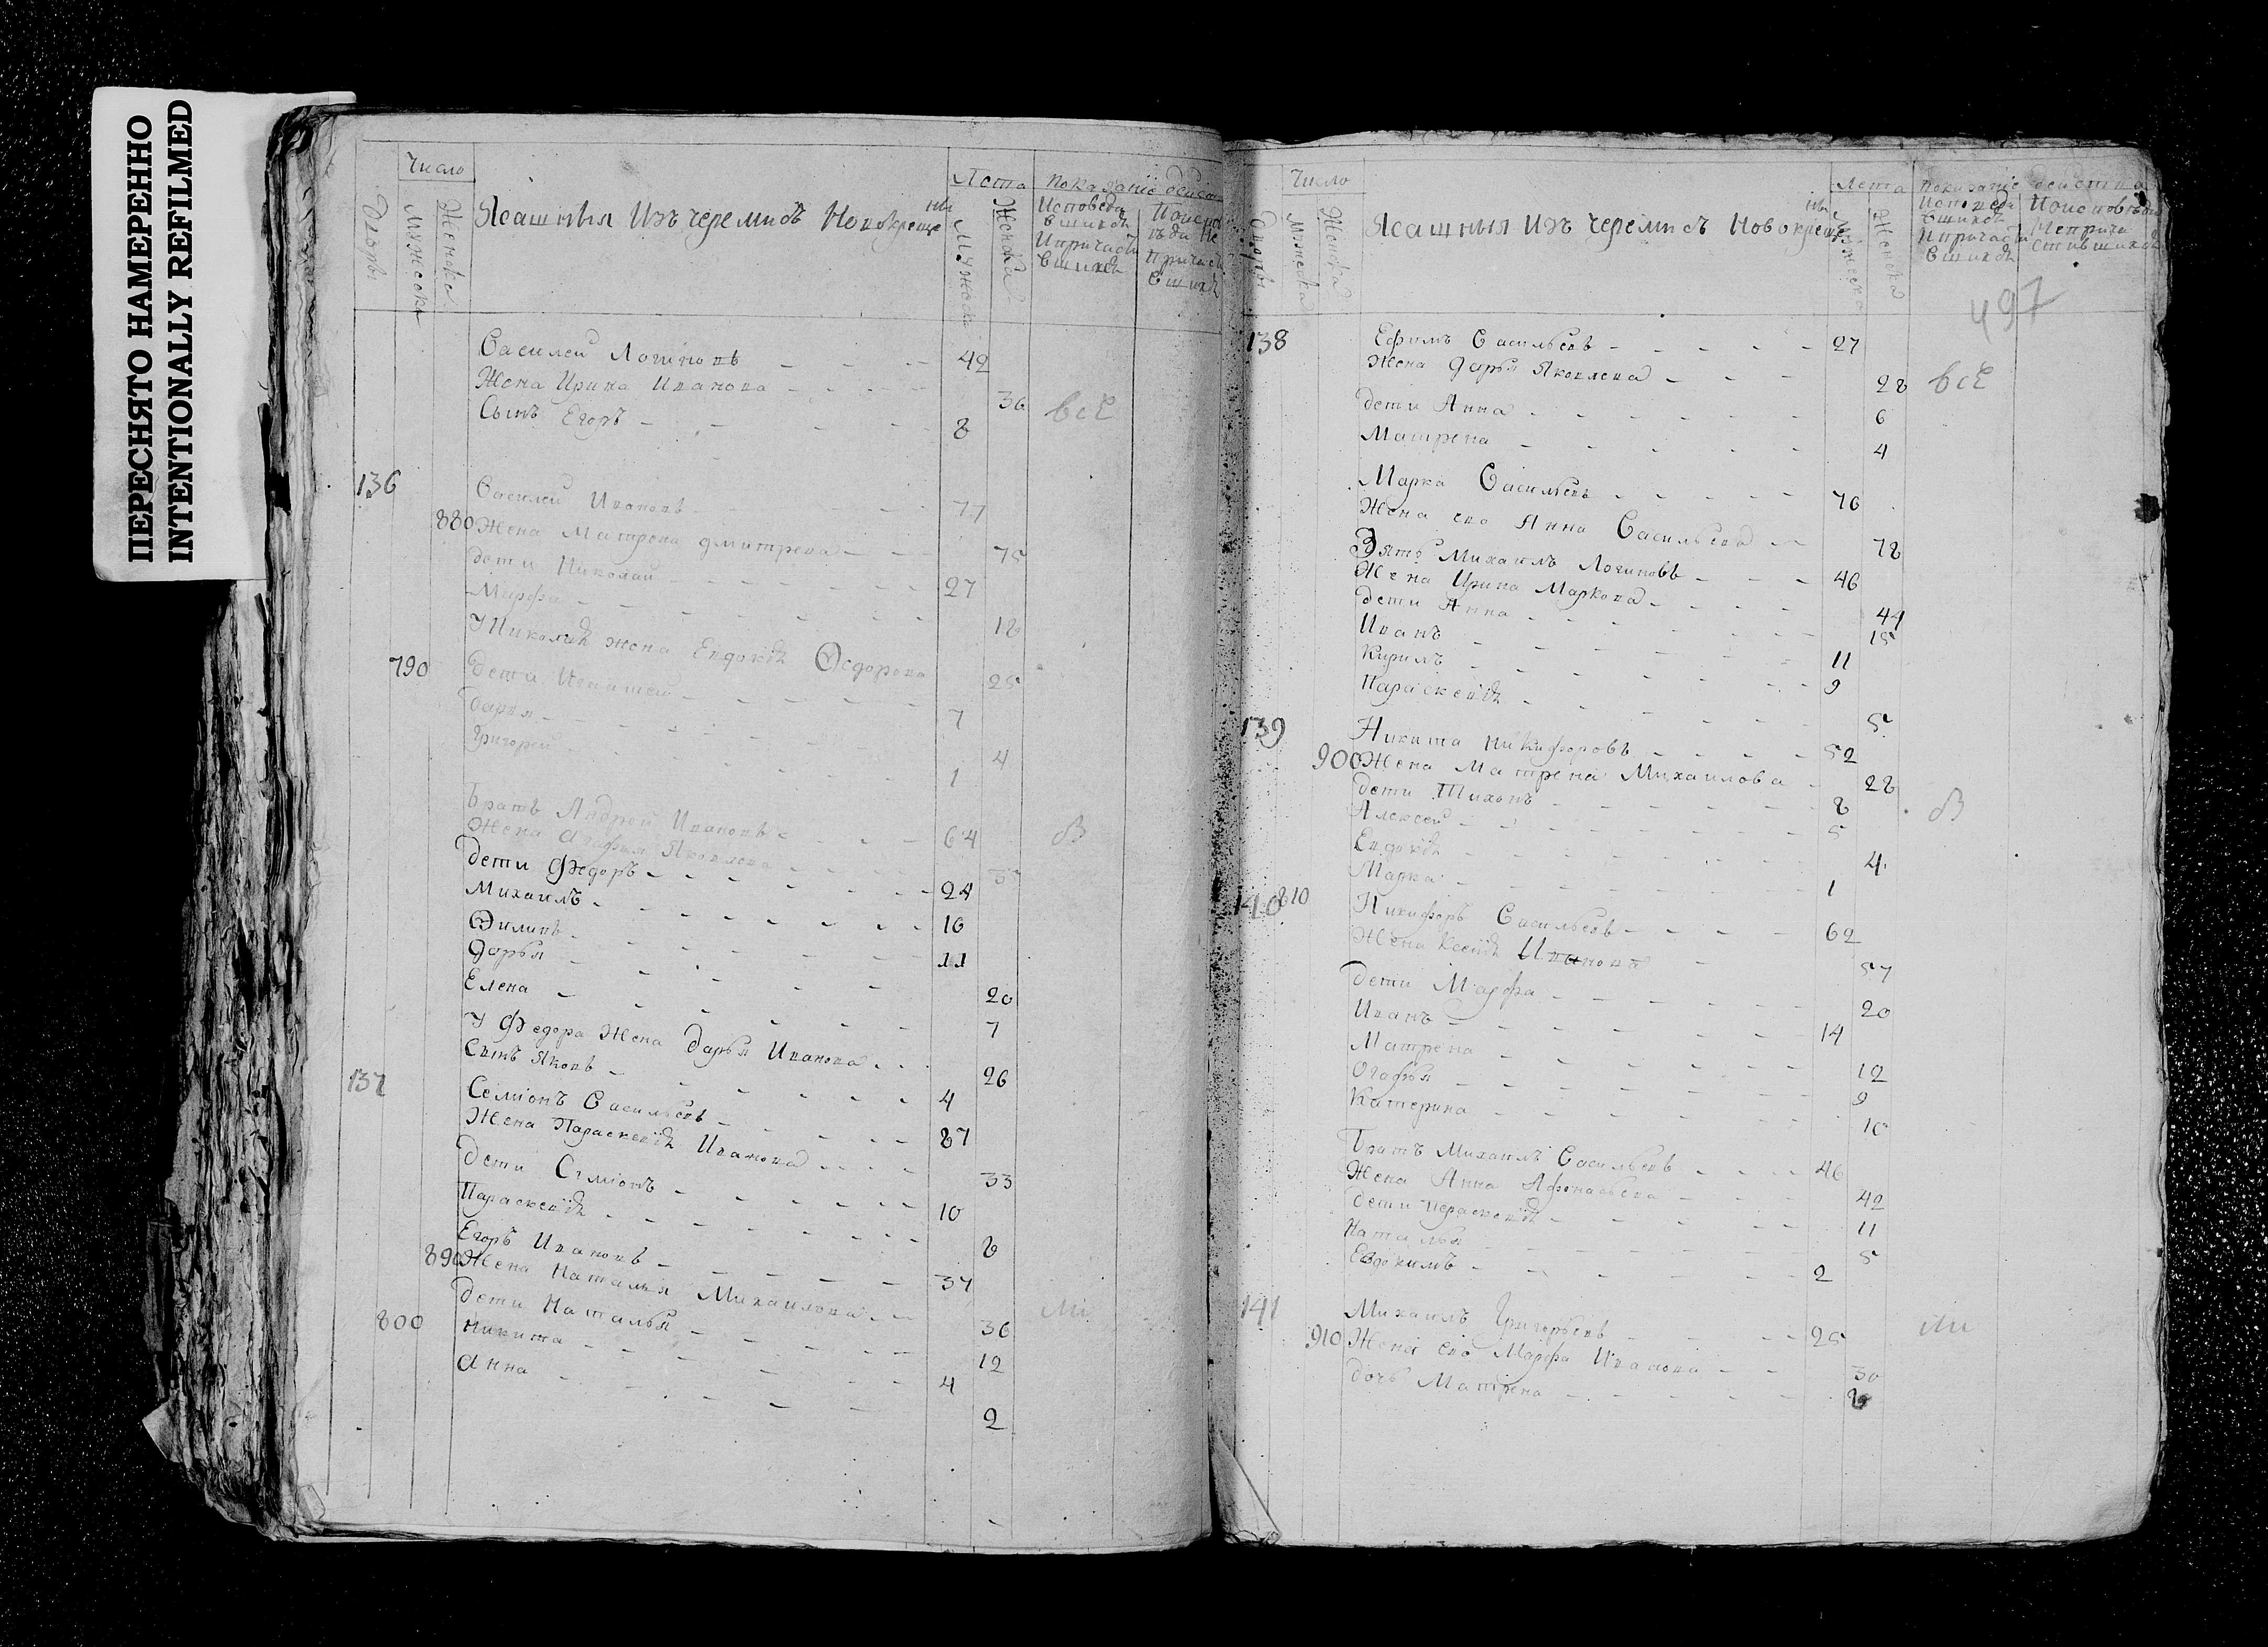 ПЕРЕСНЯТО НАМЕРЕННО
INTENTIONALLY REFILMED
Число
Лета
Показанїе действ
Дворы
Мужеска
Женска
Ясашныя Изъ черемисъ Новокреще
ны
Мужеска
Женска
Исповеда
вшихся
Ипричасти
вшихся
Поиспо
веди Не
Причаст
вшихся
Василей Логиновъ 42
Жена Ирина Иванова 36 все
Сынъ Егоръ 8
136 Василей Ивановъ 77
880 Жена Матрена Дмитрева 75
дети Николай 27
Марфа 18
У Николая жена Евдокїя Ѳедорова 25
790 дети Игнатей 7
Дарья 4
Григорей 1
братъ Андрей Ивановъ 64 В
Жена Агафья Яковлева
дети Федоръ 24
Михаилъ 16
Филипъ 11
Дарья 20
Елена 7
У Федора Жена Дарья Иванова 26
Сынъ Яковъ 4
137 Семїонъ Васильевъ 87
Жена Параскевїя Иванова 33
дети Семїонъ 10
Параскевїя 8
Егоръ Ивановъ 37
890 Жена Наталья Михаилова 36 Ми
дети Наталья 12
800 Никита 4
Анна 2
Число
Лета
Показанїе действа
Дворы
Мужеска
Женска
Ясашныя Изъ черемисъ Новокреще
ны
Мужеска
Женска
Исповеда
вшихся
Ипричасти
вшихся
Поисповеди
Неприча
стившихся
497
138 Ефимъ Васильевъ 27
Жена Дарья Яковлева 28 все
дети Анна 6
Матрена 4
Марка Васильевъ 76
Жена ево Анна Васильева 78
Зять Михаилъ Логиновъ 46
Жена Ирина Маркова 44
дети Анна 15
Иванъ 11
Кирилъ 9
Параскевїя 5
139 Никита Никифоровъ 52
900 Жена Матрена Михаилова 28
дети Тихонъ 8 В
Алексей 5
Евдокїя 4
Марка 1
140 810 Никифоръ Васильевъ 62
Жена Ксенїя Иванова 57
дети Марфа 20
Иванъ 14
Матрена 12
Огафья 9
Катерина 10
братъ Михаилъ Васильевъ 46
Жена Анна Афонасьева 42
дети Параскевїя 11
Наталья 5
Евдокимъ 2
141 Михаилъ Григорьевъ 25 Ми
910 Жена ево Марфа Иванова 30
дочь Матрена